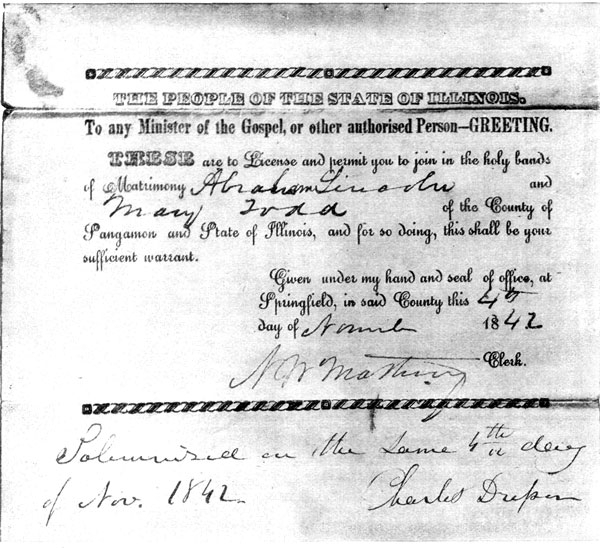 THE PEOPLE OF THE STATE OF ILLINOIS.
To any Minister of the Gospel, or other authorised Person—GREETING.
THESE are to License and permit you to join in the holy bands
of Matrimony Abraham Lincoln and
Mary Todd of the County of
Sangamon and State of Illinois, and for so doing, this shall be your
sufficient warrant.
Given under my hand and seal of office, at
Springfield, in said County this 4th
day of 1842
N W Clerk.
Solemnized on the same 4th day
of Nov. 1842. Charles Dresser